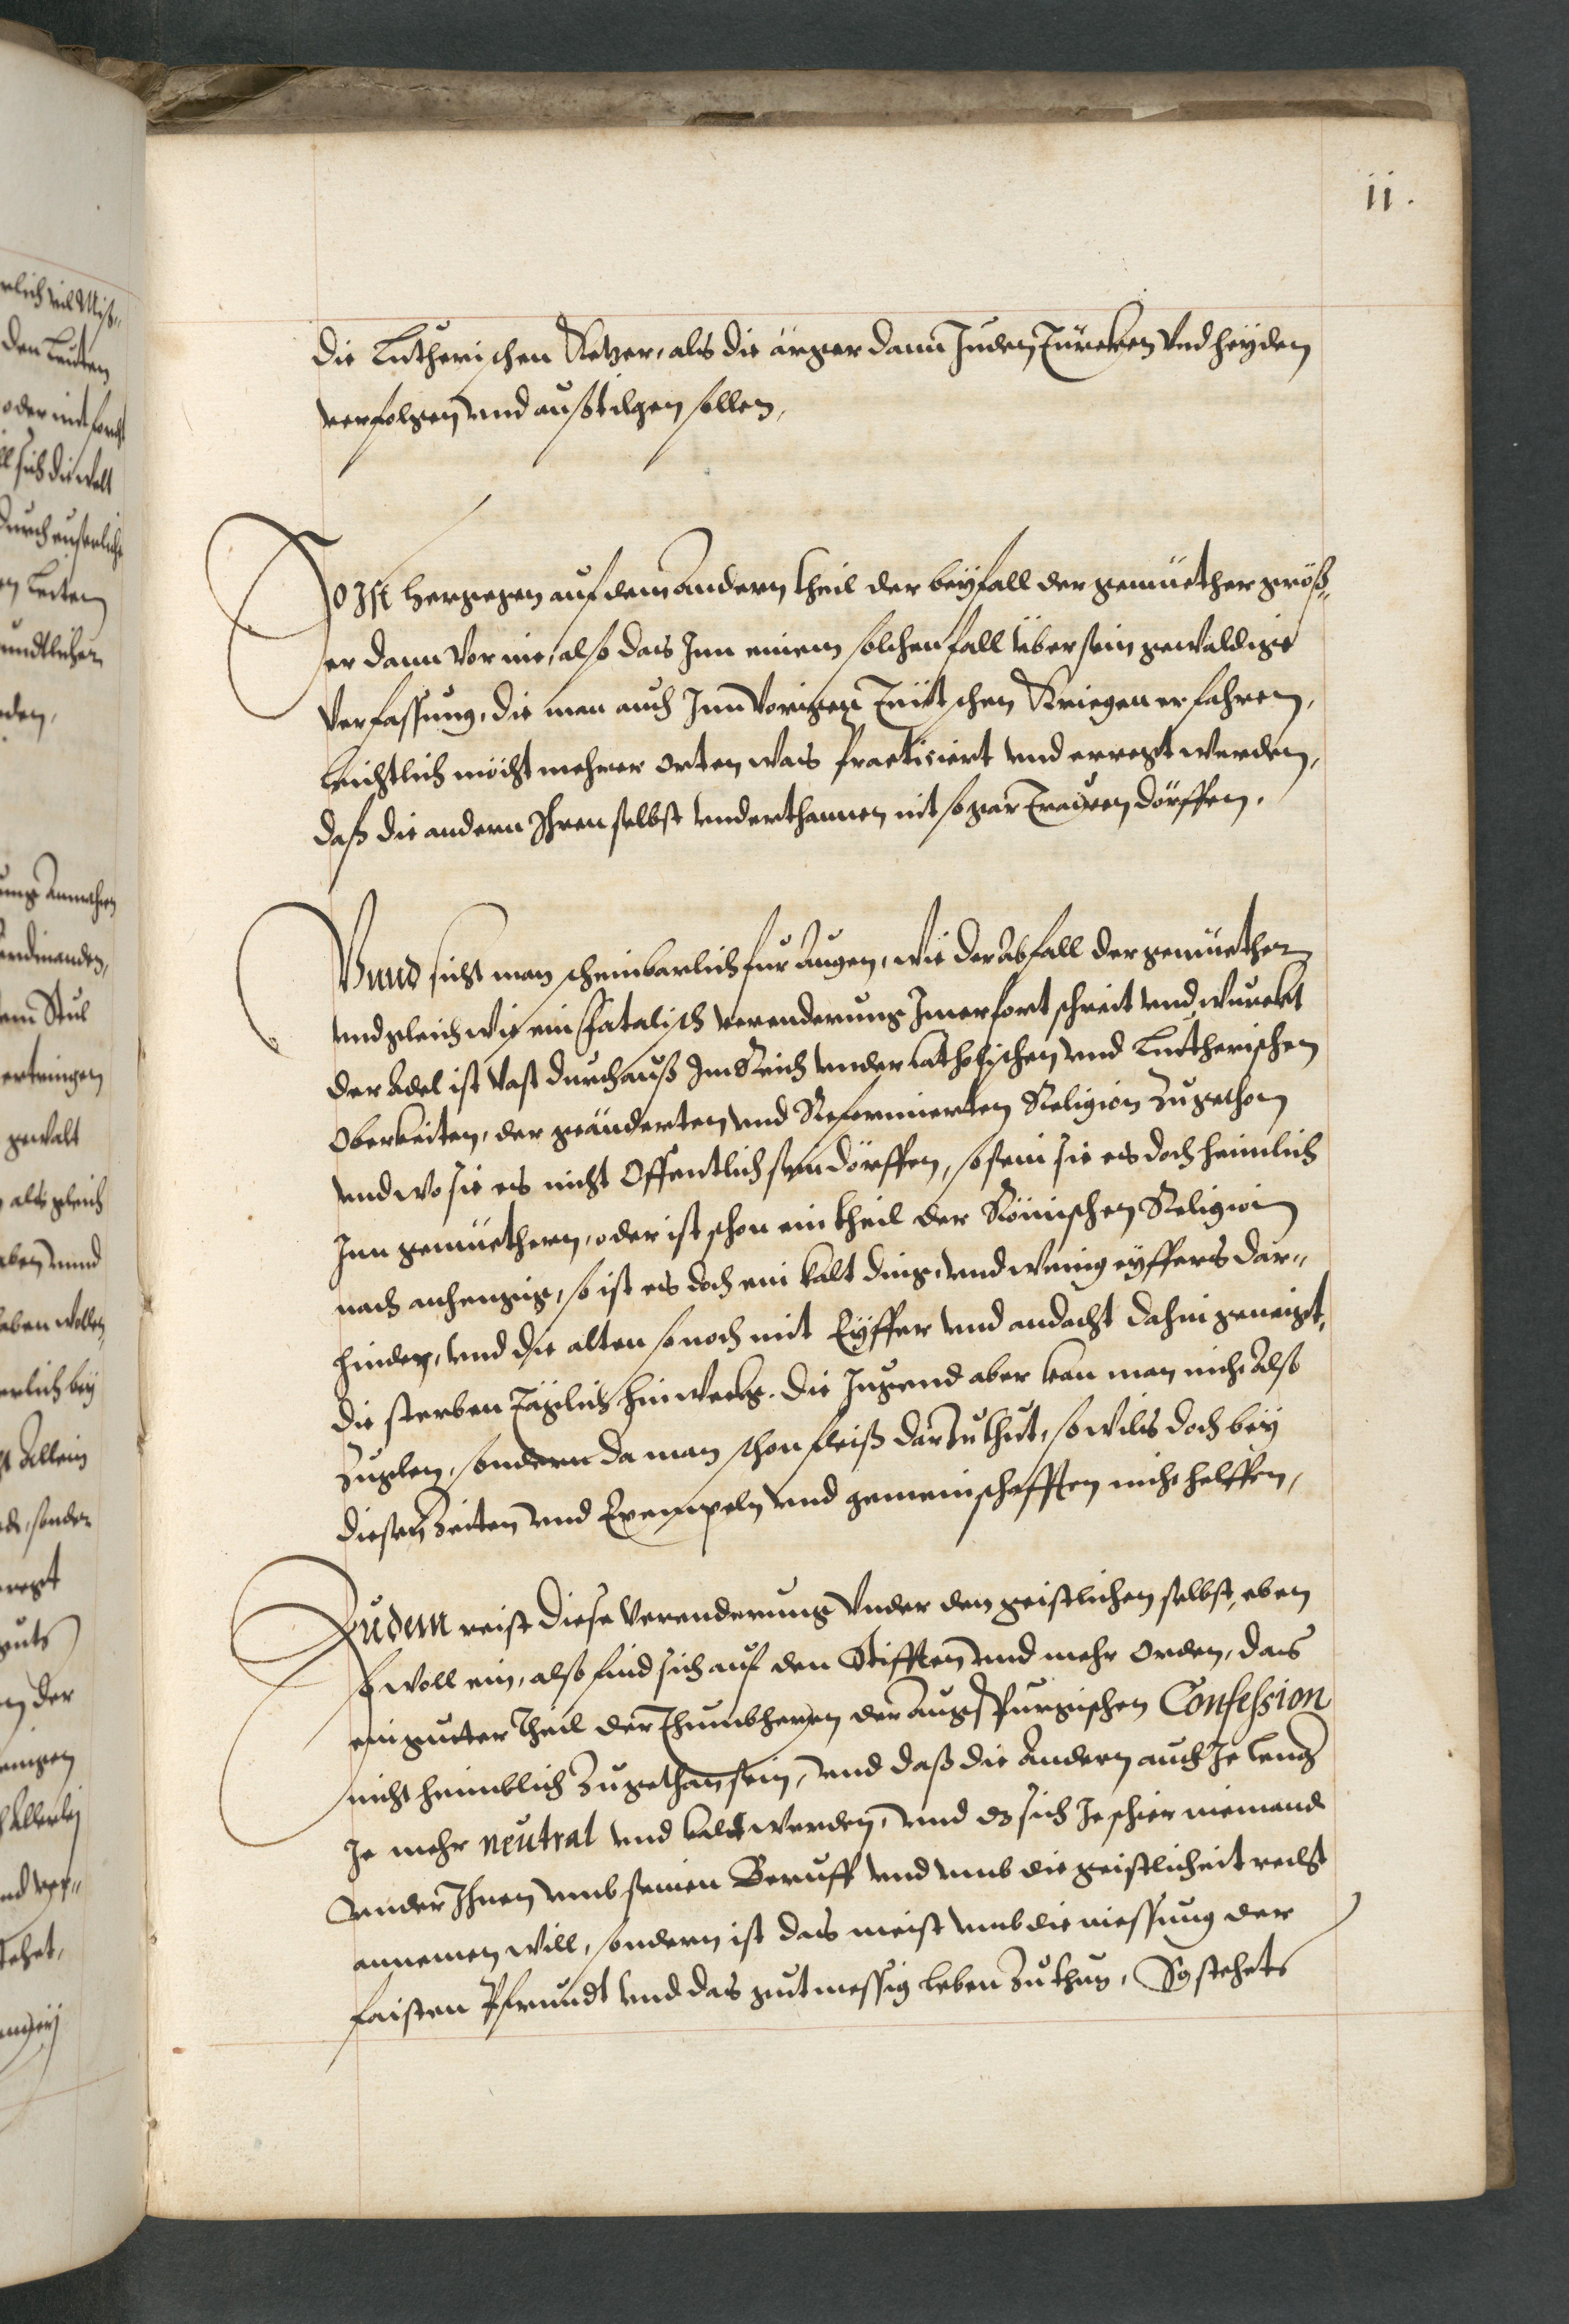 11.
die Lutherischen Ketzer, als die ärger dann Juden, Türcken vnd heyden
verfolgen vnd außtilgen sollen,
So Ist hergegen auf dem andern theil der beyfall der gemüether größ„
er dann vor nie, also das Inn einem solchen fall über sein gewaldige
Verfassung, die man auch Inn vorigen Teütschen Kriegen erfahren,
leichtlich möcht mehrer orten was practiciert vnd erregt werden,
daß die andern Ihren selbst vnderthannen nit so gar trauen dörffen.
Vnnd sicht man scheinbarlich für augen, wie der abfall der gemüether
vnd gleich wie ein fatalisch verenderung Imerfort schreit vnd wurckt
der Adel ist vast durchauß Im Reich vnder Catholischen vnd Lutherischen
Oberkeiten, der geänderten vnd Reformierten Religion zugethon
vnd wo sie es nicht Offentlich sein dörffen, so sein sie es doch heimlich
Inn gemüethern, oder ist schon ein theil der Römischen Religion
nach anhengig, so ist es doch ein kalt ding, vnd wenig eyffers dar„
hinder, vnd die alten so noch mit Eyffer vnd andacht dahin geneigt,
die sterben täglich hinweckh. die Jugend aber kan man nicht also
Zuglen, sondern da man schon fleiß darzu thut, so wils doch bey
diesen Zeiten vnd Exempeln vnd gemeinschafften nicht helffen,
Zudem reist diese Verenderung vnder den geistlichen selbst, eben
so woll ein, also find sich auf den Stifften vnd mehr orden, das
ein gutter theil der Thumbherren der augspurgischen Confession
nicht heimblich zugethan sein, vnd daß die Andern auch Je leng
Je mehr neutral vnd kalt werden, vnd es sich Je schier niemand
vnder Ihnen vmb seinen Beruff vnd vmb die geistlicheit recht
annemen will, sondern ist das meist vmb die niessung der
faisten Pfrundt vnd das gutmessig leben zu thun, So stehets